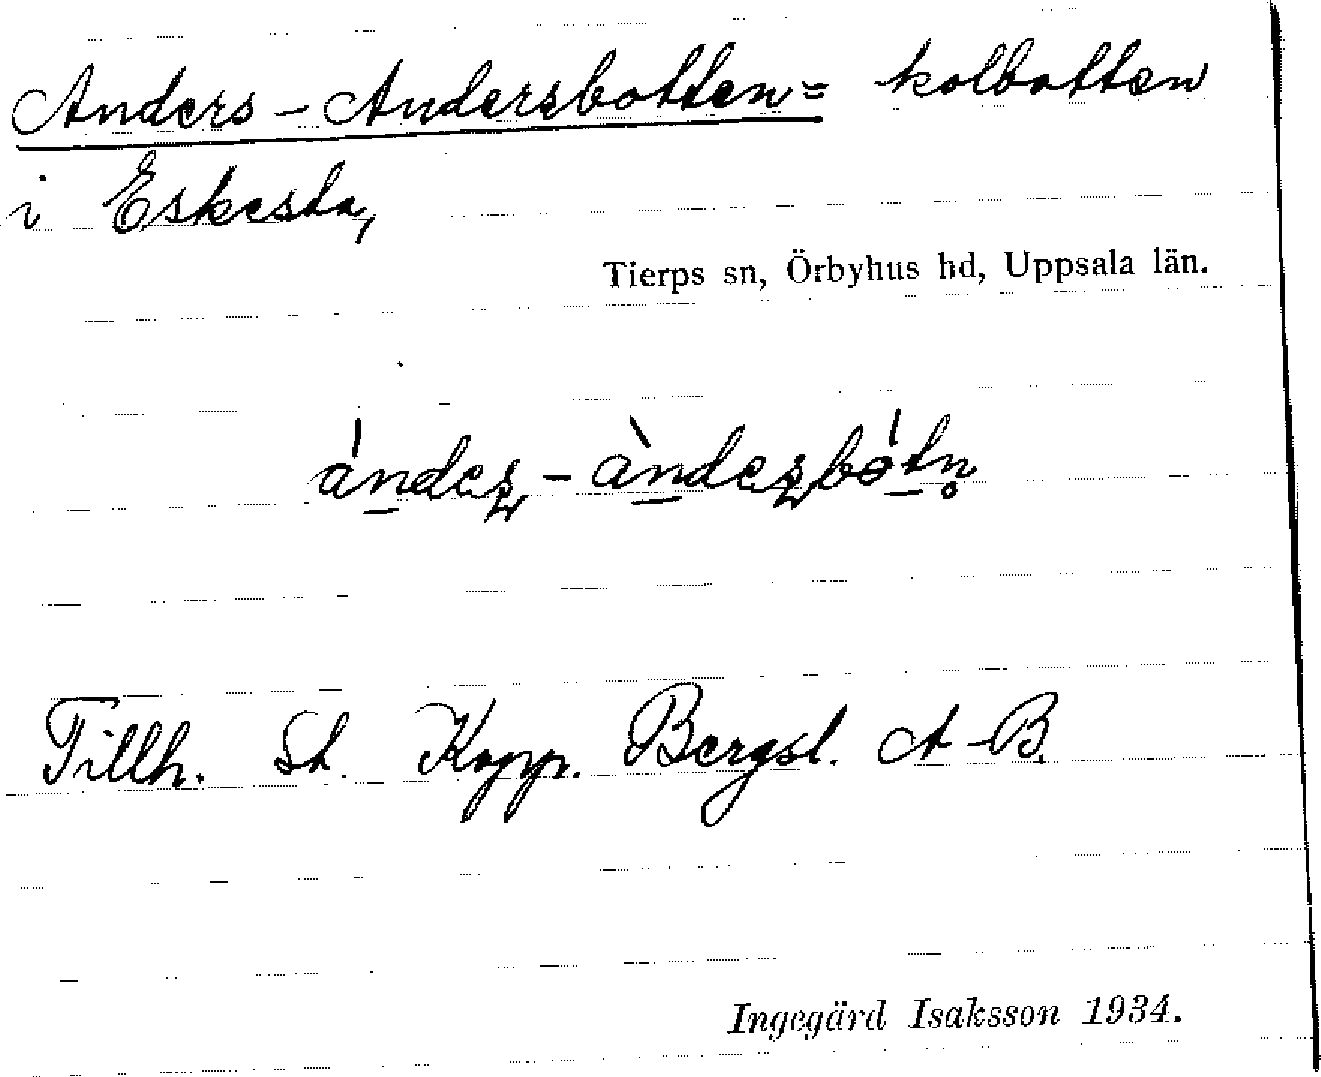 Anders-Andersbotten = kolbotten
i Eskesta,
Tierps sn, Örbyhus hd, Uppsala län.
Tillh. St. Kopp. Bergsl. A-B.
Ingegärd Isaksson 1934.